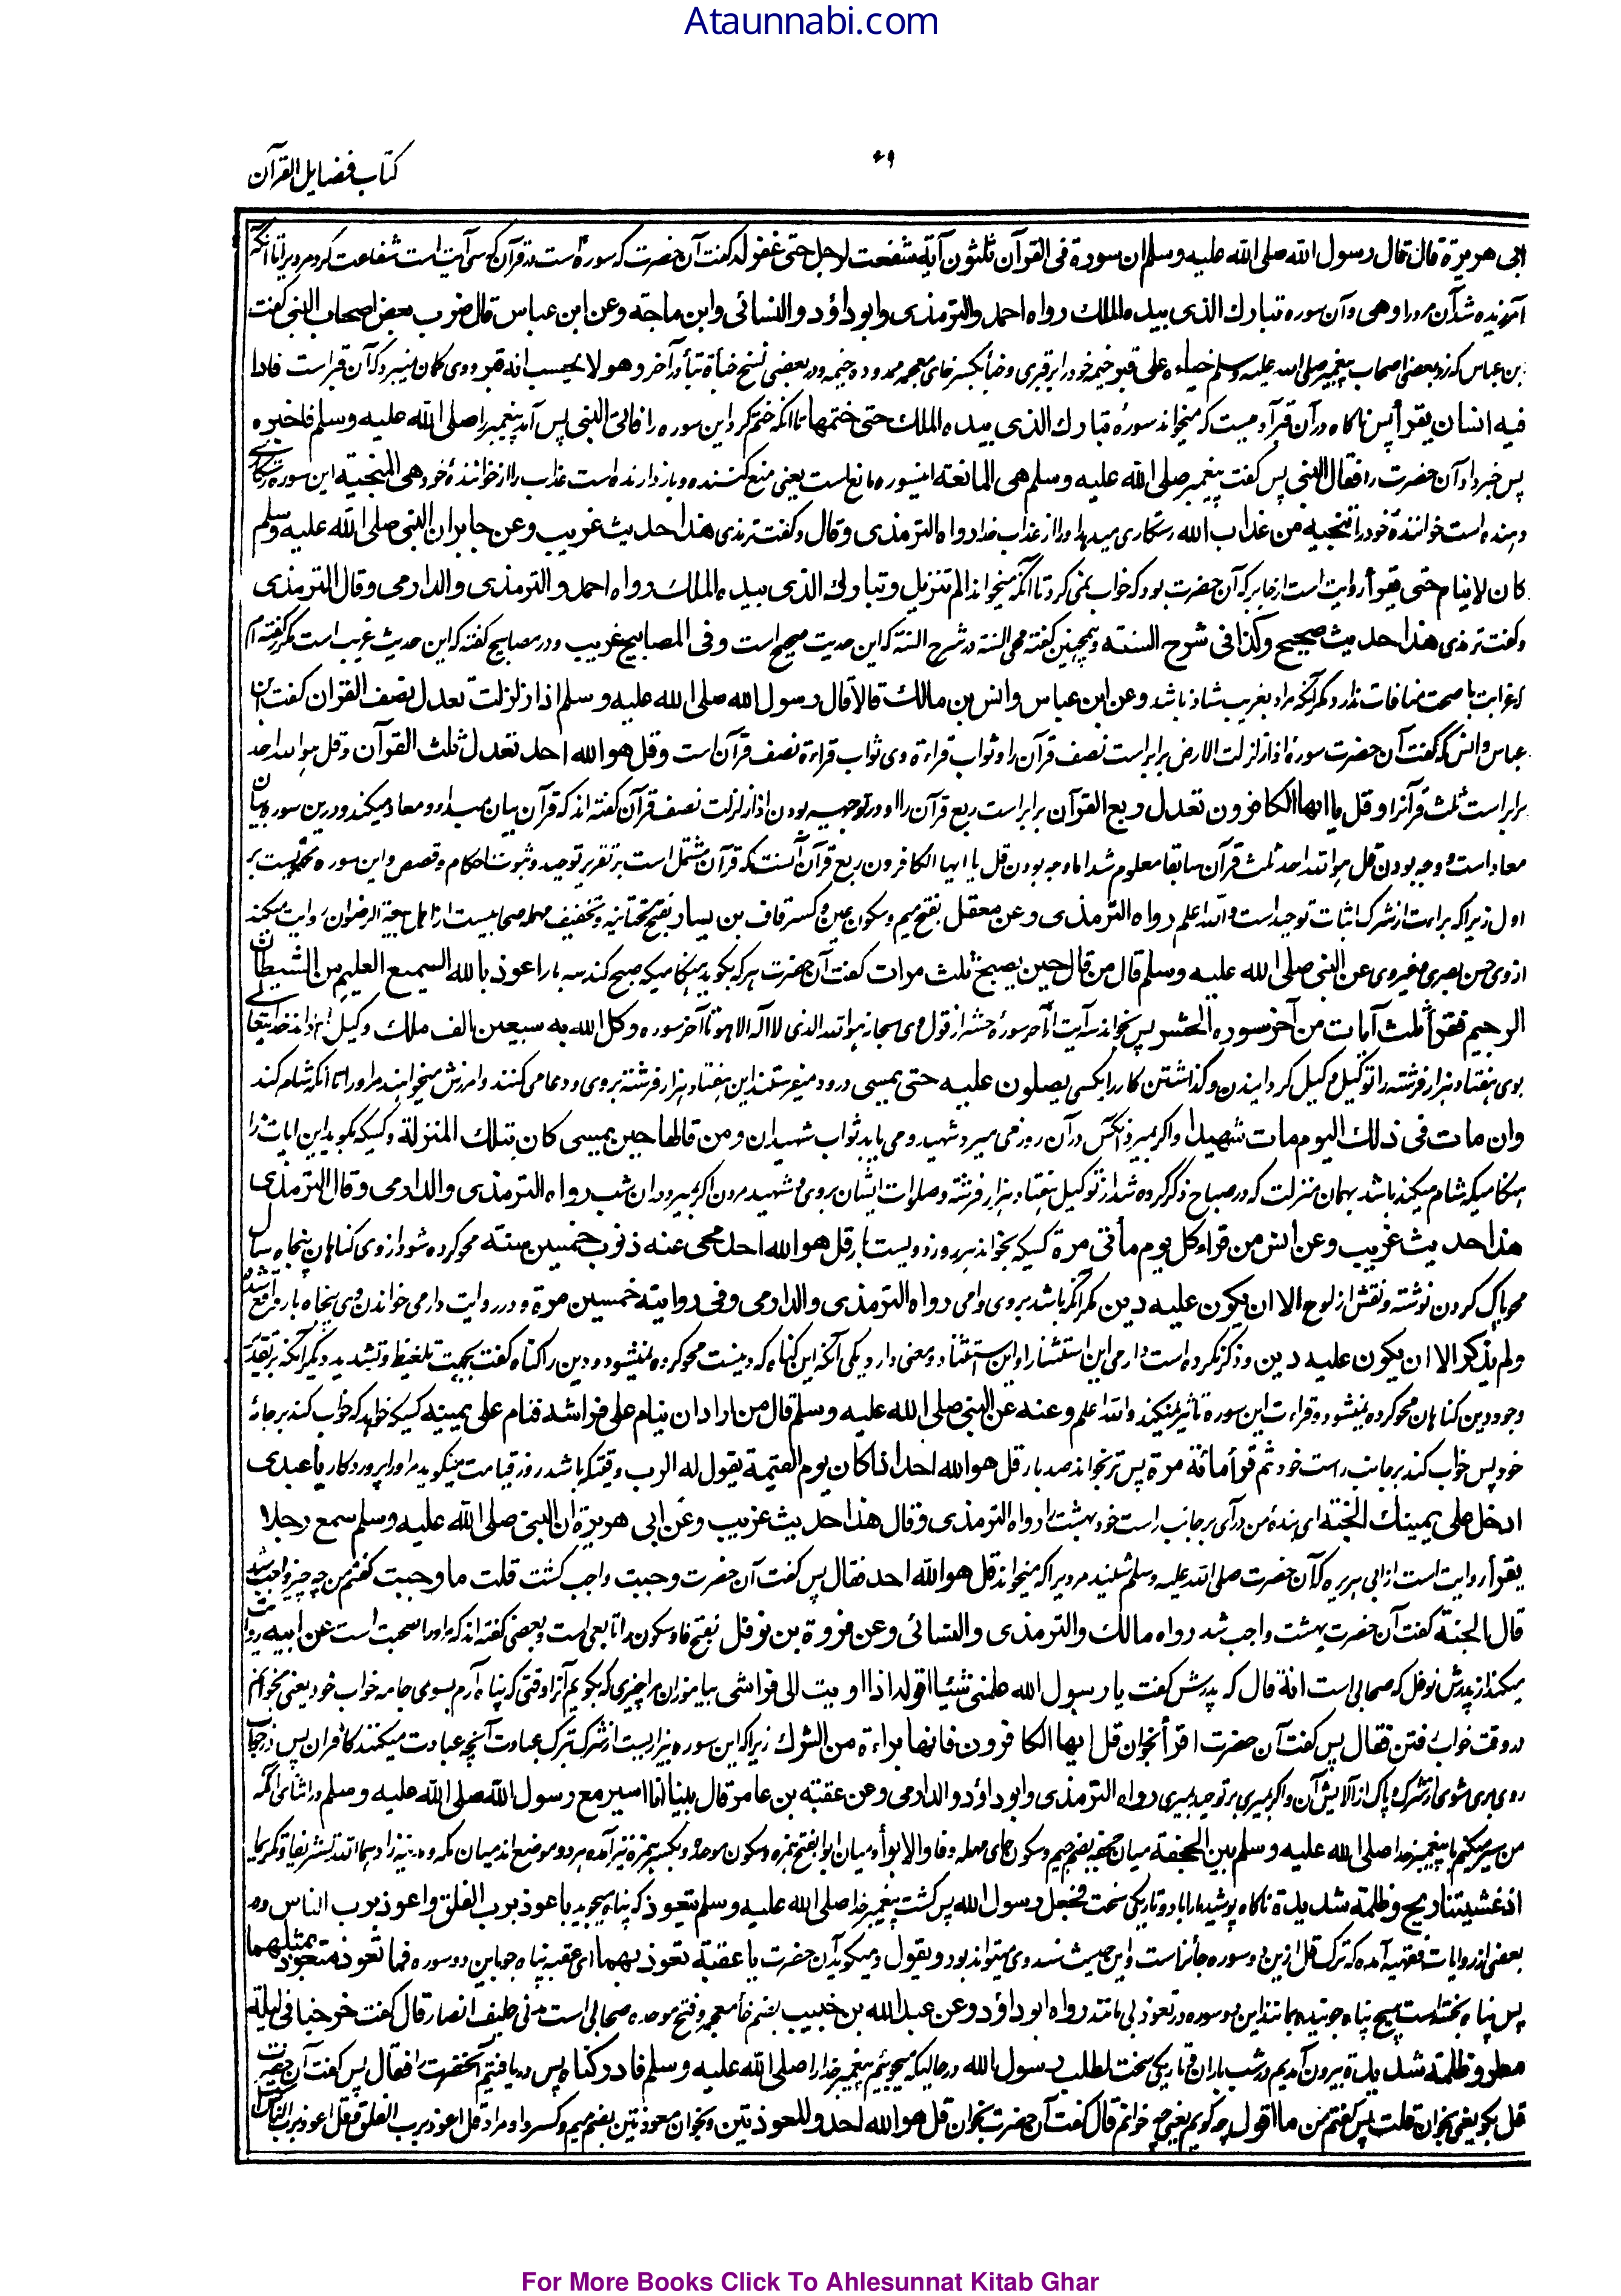 Ataunnabi.com
کتاب فضایل القرآن
ابی هریرة قال قال رسول الله صلی الله علیه وسلم ان سورة فی القرآن ثلثون آیة شفعت لرجل حتی غفر له گفت آن حضرت که سوره است در قرآن که سی آیت است شفاعت کرد مر مردیرا تا آنکه
آمرزیده شد آن مرد را وهی وآن سوره تبارك الذی بیده الملك رواه احمد والترمذی وابو داؤد والنسائی وابن ماجة وعن ابن عباس قال ضرب بعض اصحاب النبی گفت
بن عباس که زد بعضی اصحاب پیغمبر صلی الله علیه وسلم خباءه علی قبر خیمه خود را بر قبری وخبأ بکسر خای معجمه ممدوده خیمه ودر بعضی نسخ خبأة بتا در آخر وهو لا یحسب انه قبر ووی گمان نمیبرد که آن قبر است فاذا
فیه انسان یقرأ پس ناگاه در آن قبر آدمیست که میخواند سورۀ تبارك الذی بیده الملك حتی ختمها تا آنکه ختم کرد این سوره را فاتی النبی پس آمد پیغمبر را صلی الله علیه وسلم فاخبره
پس خبر داد آن حضرت را فقال النبی پس گفت پیغمبر صلی الله علیه وسلم هی المانعة اینسوره مانع است یعنی منع کننده وباز دارنده است عذاب را از خوانندۀ خود هی المنجیة این سوره رستگاری
دهنده است خوانندۀ خود را تنجیه من عذاب الله رستگاری میدهد او را از عذاب خدا رواه الترمذی وقال وگفت ترمذی هذا حدیث غریب وعن جابر ان النبی صلی الله علیه وسلم
کان لا ینام حتی یقرأ روایت است از جابر که آن حضرت بود که خواب نمی کرد تا آنکه میخواند الم تنزیل وتبارك الذی بیده الملك رواه احمد والترمذی والدارمی وقال الترمذی
وگفت ترمذی هذا حدیث صحیح وکذا فی شرح السنة وهمچنین گفته محی السنة در شرح السنة که این حدیث صحیح است وفی المصابیح غریب ودر مصابیح گفته که این حدیث غریب است مگر گفته ام
که غرابت با صحت منافات ندارد مگر آنکه مراد بغریب شاذ باشد وعن ابن عباس وانس بن مالك قالا قال رسول الله صلی الله علیه وسلم اذا زلزلت تعدل نصف القران گفت ابن
عباس وانس که گفت آن حضرت سورۀ اذا زلزلت الارض برابر است نصف قرآن را وثواب قراءة وی ثواب قراءة نصف قرآن است وقل هو الله احد تعدل ثلث القرآن وقل هو الله احد
برابر است ثلث قرآنرا وقل یا ایها الکافرون تعدل ربع القرآن برابر است ربع قرآن را ودر توجیه بودن اذا زلزلت نصف قرآن گفته اند که قرآن بیان مبداء ومعاد میکند ودرین سوره بیان
معاد است ووجه بودن قل هو الله احد ثلث قرآن سابقا معلوم شد اما وجه بودن قل یا ایها الکافرون ربع قرآن آنست که قرآن مشتمل است بر تقریر توحید ونبوت واحکام وقصص واین سوره محتویست بر
اول زیرا که براءت از شرك اثبات توحید است والله اعلم رواه الترمذی وعن معقل بفتح میم وسکون عین وکسر قاف بن یسار بفتح تحتانیه وتخفیف مهمله صحابیست از اهل بیعة الرضوان روایت میکند
از وی حسن بصری وغیر وی عن النبی صلی الله علیه وسلم قال من قال حین یصبح ثلث مرات گفت آن حضرت هر که بگوید هنگامیکه صبح کند سه بار اعوذ بالله السمیع العلیم من الشیطان
الرجیم فقرأ ثلث آیات من آخر سورة الحشر پس بخواند سه آیت از آخر سورۀ حشر از قول وی سبحانه هو الله الذی لا اله الا هو تا آخر سوره وکل الله به سبعین الف ملك وکیل گرداند خدایتعالی
بوی هفتاد هزار فرشته را توکیل وکیل گردانیدن وگذاشتن کار را بکسی یصلون علیه حتی یمسی درود میفرستند این هفتاد هزار فرشته بر وی ودعا می کنند وآمرزش میخواهند مر او را تا آنکه شام کند
وان مات فی ذلك الیوم مات شهیدا واگر بمیرد آنکس در آن روز می میرد شهید ومی یابد ثواب شهیدان ومن قالها حین یمسی کان بتلك المنزلة وکسیکه بگوید این ایات را
هنگامیکه شام میکند باشد بهمان منزلت که در صباح ذکر کرده شد از توکیل هفتاد هزار فرشته وصلوات ایشان بر وی وشهید مردن اگر بمیرد در ان شب رواه الترمذی والدارمی وقال الترمذی
هذا حدیث غریب وعن انس من قراء کل یوم مأتی مرة کسیکه بخواند هر روز دویست بار قل هو الله احد محی عنه ذنوب خمسین سنة محو کرده شود از وی گناهان پنجاه سال
محو پاک کردن نوشته ونقش از لوح الا ان یکون علیه دین مگر آنکه باشد بر وی وامی رواه الترمذی والدارمی وفی روایته خمسین مرة ودر روایت دارمی خواندن وی پنجاه بار واقع شده
ولم یذکر الا ان یکون علیه دین وذکر نکرده است دارمی این استثنا را واین استثنا دو معنی دارد یکی آنکه این گناه که دینست محو کرده نمیشود ودین را گناه گفت بجهت تغلیظ وتشدید ودیگر آنکه بر تقدیر
وجود دین گناهان محو کرده نمیشود وقراءت این سوره تأثیر نمیکند والله اعلم وعنه عن النبی صلی الله علیه وسلم قال من اراد ان ینام علی فراشه فنام علی یمینه کسیکه خواهد که خواب کند بر جامۀ
خود پس خواب کند بر جانب راست خود ثم قرأ مائة مرة پس تر بخواند صد بار قل هو الله احد اذا کان یوم القیمة یقول له الرب وقتیکه باشد روز قیامت میگوید مر او را پروردگار یا عبدی
ادخل علی یمینك الجنة ای بندۀ من در آی بر جانب راست خود بهشت را رواه الترمذی وقال هذا حدیث غریب وعن ابی هریرة ان النبی صلی الله علیه وسلم سمع رجلا
یقرأ روایت است از ابی هریره که آن حضرت صلی الله علیه وسلم شنید مردیرا که میخواند قل هو الله احد فقال پس گفت آن حضرت وجبت واجب گشت قلت ما وجبت گفتم من چه چیز واجب شد
قال الجنة گفت آن حضرت بهشت واجب شد رواه مالك والترمذی والنسائی وعن فروة بن نوفل بفتح فا وسکون را تابعی است وبعضی گفته اند که او را صحبت است عن ابیه روایت
میکند از پدرش نوفل که صحابی است انه قال که پدرش گفت یا رسول الله علمنی شیئا اقوله اذا اویت الی فراشی بیاموزان مرا چیزی که بگویم آنرا وقتی که پناه آرم بسوی جامه خواب خود یعنی بخوانم
در وقت خواب رفتن فقال پس گفت آن حضرت اقرأ بخوان قل یا ایها الکافرون فانها براءة من الشرك زیرا که این سوره بیزاریست از شرک بترک عبادت آنچه عبادت میکنند کافران پس
روی بری شوی از شرک وپاک از آلایش آن واگر بمیری بر توحید بمیری رواه الترمذی وابو داؤد والدارمی وعن عقبة بن عامر قال بینا انا اسیر مع رسول الله صلی الله علیه وسلم در اثنای آنکه
من سیر میکنم با پیغمبر خدا صلی الله علیه وسلم بین الجحفة میان جحفه بضم جیم وسکون حای مهمله وفا والابوأ ومیان ابوا بفتح همزه وسکون موحده وبکسر همزه نیز آمده هر دو موضع اند میان مکه ومدینه زادهما الله تشریفا وتکریما
اذ غشیتنا ریح وظلمة شدیدة ناگاه پوشید ما را باد وتاریکی سخت فجعل رسول الله پس گشت پیغمبر خدا صلی الله علیه وسلم یتعوذ که پناه میجوید باعوذ برب الفلق واعوذ برب الناس ودر
بعضی از روایات فقهیه آمده که ترک قل ازین دو سوره جائز است واین حدیث سند وی میتواند بود ویقول ومیگوید آن حضرت یا عقبة تعوذ بهما ای عقبه پناه جو باین دو سوره فما تعوذ متعوذ بمثلهما
پس پناه نجسته است هیچ پناه جوینده بمانند این دو سوره در تعوذ بی مانند رواه ابو داؤد وعن عبد الله بن خبیب بضم خأ معجمه وفتح موحده صحابی است مدنی حلیف انصار قال گفت خرجنا فی لیلة
مطر وظلمة شدیدة بیرون آمدیم در شب باران وتاریکی سخت نطلب رسول الله در حالیکه میجوییم پیغمبر خدا را صلی الله علیه وسلم فادرکناه پس دریافتیم آنحضرت را فقال پس گفت آن حضرت
قل بگو یعنی بخوان قلت پس گفتم من ما اقول چه گویم یعنی چه خوانم قال گفت آن حضرت بخوان قل هو الله احد والمعوذتین وبخوان معوذتین بضم میم وکسر واو مراد قل اعوذ برب الفلق وقل اعوذ برب الناس است
For More Books Click To Ahlesunnat Kitab Ghar